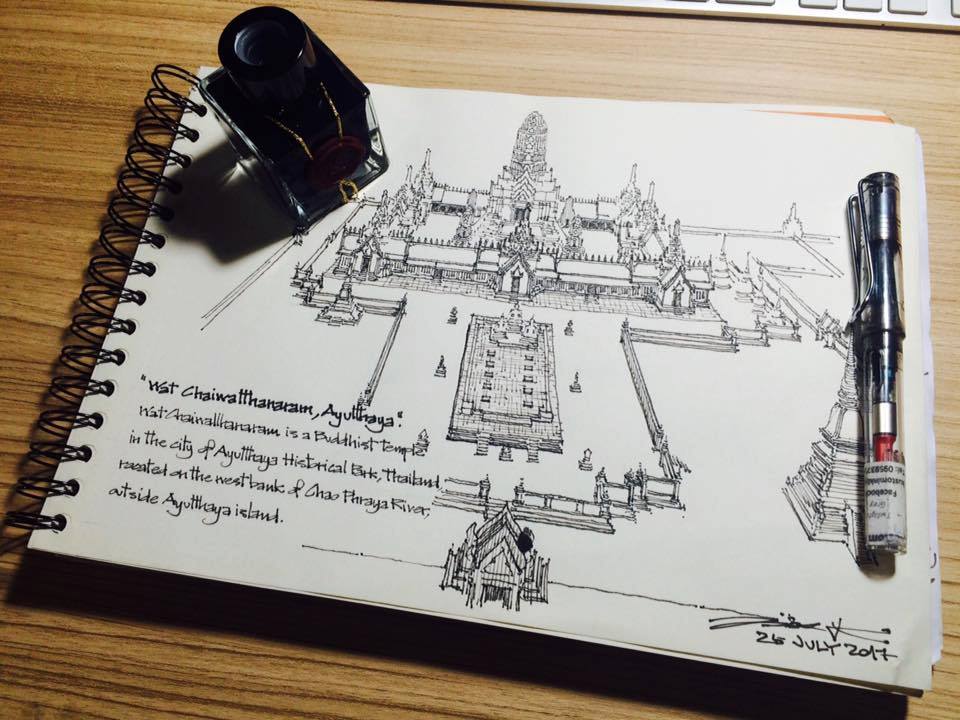 "Wat Chaiwatthanaram, Ayutthaya".
Wat Chaiwatthanaram is a Buddhist Temple
in the city of Ayutthaya Historical Park, Thailand
located on the west bank of Chao Phraya River,
outside Ayutthaya island.
25 JULY 2017
Twilight
Grey
Facebook